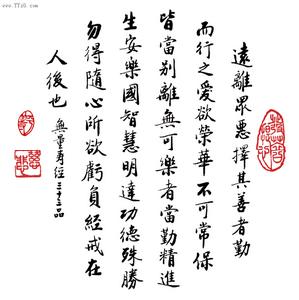 www.TTz8.com
遠離眾惡擇其善者勤
而行之愛欲榮華不可常保
皆當別離無可樂者當勤精進
生安樂國智慧明達功德殊勝
勿得隨心所欲虧負經戒在
人後也
無量壽經三十三品